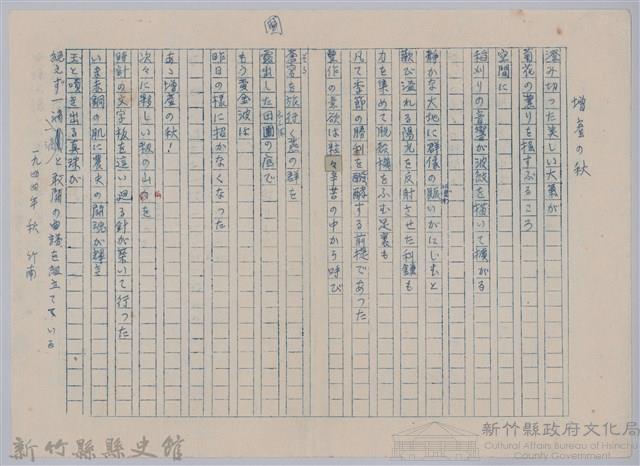 増産の秋
澄み切った美しい大気が
菊花の薫りを揺すぶるころ
空間に
稲刈りの音響が波紋を描いて擴がる
静かな大地に群像の賑いがにじむと
歓び溢れる陽光を反射させた利鎌も
力を集めて脱穀機をふむ足裏も
凡て季節の勝利を醗酵する前提であった
豊作の意欲は粒々辛苦の中から呼び
蒼空を旅行く雲の群を
露出した田圃の底で
もう黄金波は
昨日の様に招かなくなった
あゝ増産の秋！
次々に新しい籾の山を
時計の文字板を這い廻る針が築いて行った
いま赤銅の肌に農夫の闘魂が輝き
玉と噴き出る真珠が
絶えず一滴一滴と敢闘の曲譜を組立てている
一九四四年 秋 竹南
新竹縣縣史館
新竹縣政府文化局
Cultural Affairs Bureau of Hsinchu
County Government